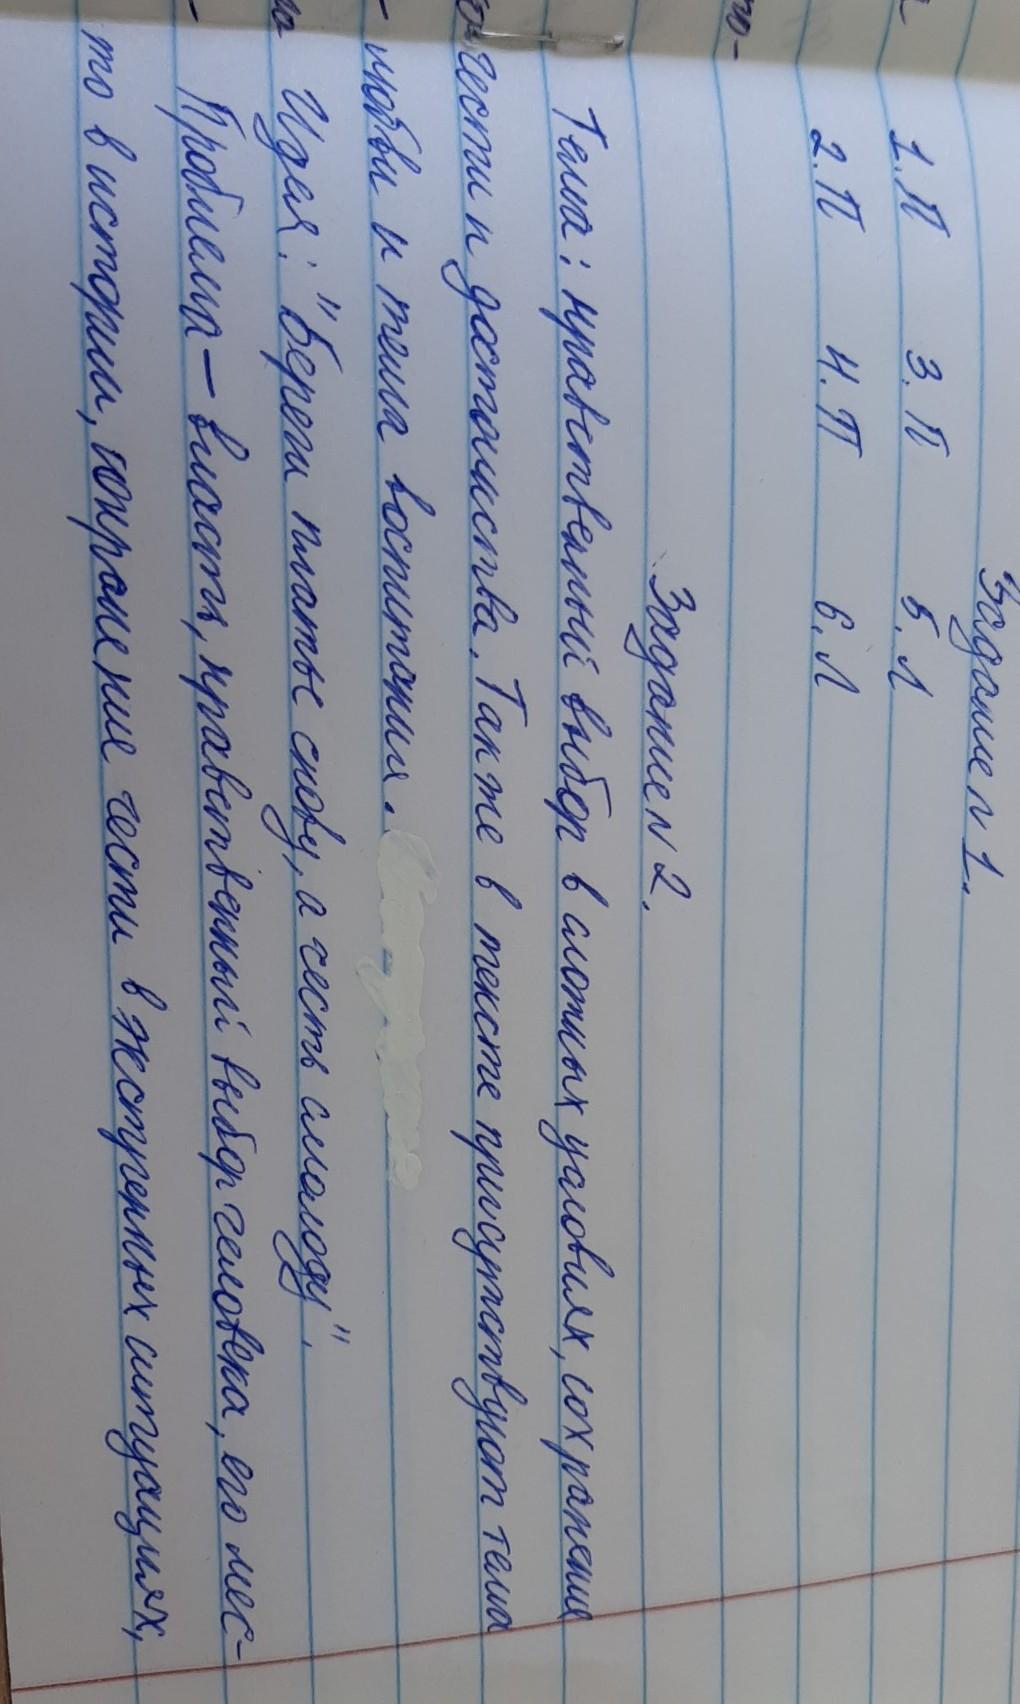 Задание №1.
1. П 3. П 5. Л
2. П 4. П 6. Л
Задание №2.
Тема: нравственный выбор в сложных условиях, сохранение
чести и достоинства. Также в тексте присутствуют тема
любви и тема воспитания.
Идея: "Береги платье снову, а честь смолоду".
Проблема – власть, нравственный выбор человека, его мес-
то в истории, сохранение чести в экстренных ситуациях,